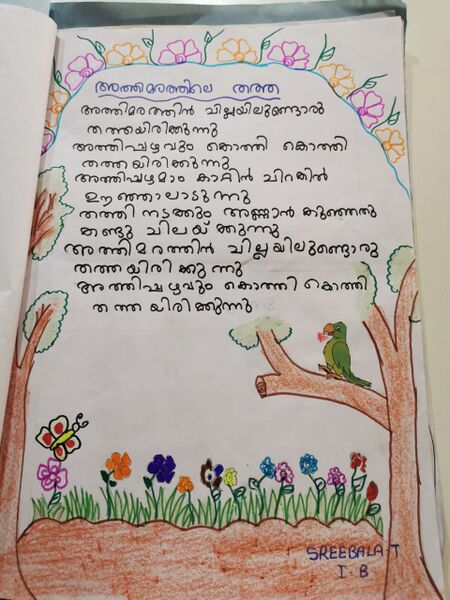 അത്തിമരത്തിലെ തത്ത
അത്തിമരത്തിൻ ചില്ലയിലുണ്ടൊരു
തത്തയിരിക്കുന്നു
അത്തിപ്പഴവും കൊത്തി കൊത്തി
തത്തയിരിക്കുന്നു
അത്തിപ്പഴമാം കാറ്റിൻ ചിറകിൽ
ഊഞ്ഞാലാടുന്നു
തത്തി നടക്കും അണ്ണാൻ കുഞ്ഞതു
കണ്ടു ചിലയ്ക്കുന്നു
അത്തിമരത്തിൻ ചില്ലയിലുണ്ടൊരു
തത്തയിരിക്കുന്നു
അത്തിപ്പഴവും കൊത്തി കൊത്തി
തത്തയിരിക്കുന്നു
SREEBALA-T
I-B